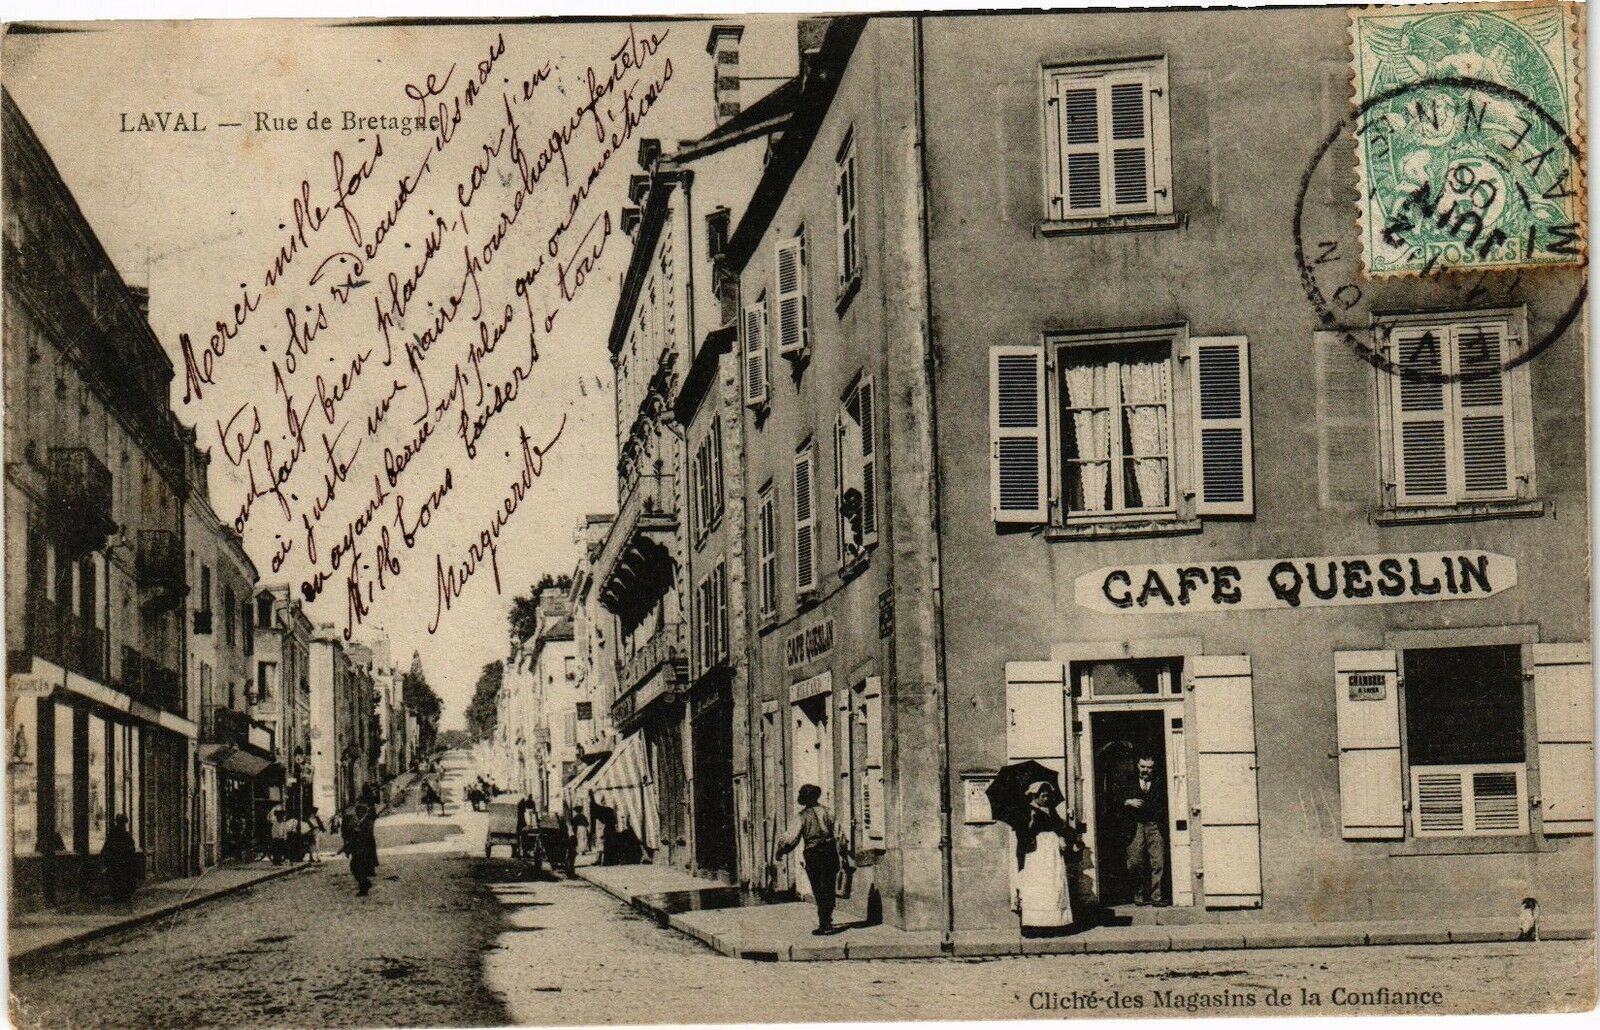 LAVAL — Rue de Bretagne
Merci mille fois de
tes jolis rideaux, ils nous
ont fait bien plaisir, car j'en
ai juste une paire pour chaque fenêtre
en ayant beaucoup plus qu'on
Mille bons baisers à tous
Marguerite
5
POSTES
EVRON
MAYENNE
JUIN
06
CAFE QUESLIN
CAFE QUESLIN
CHAMBRES
A LOUER
Cliché des Magasins de la Confiance